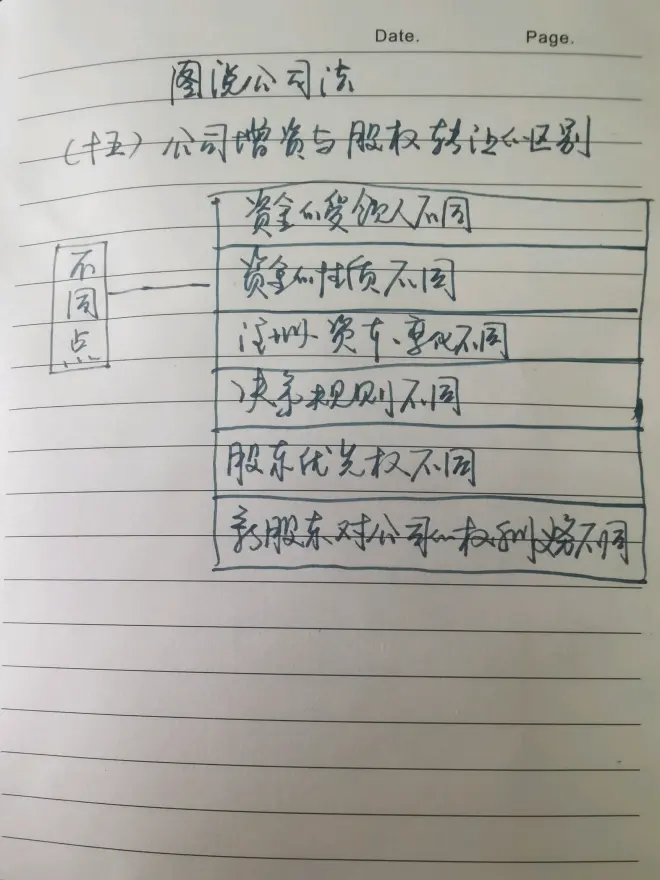 Date. Page.
图说公司法
(十五)公司增资与股权转让的区别
不同点
资金的受领人不同
资金的性质不同
注册资本变化不同
决策规则不同
股东优先权不同
新股东对公司的权利义务不同